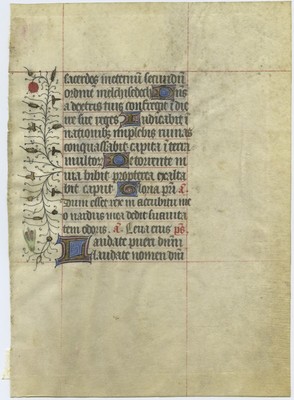 sacerdos ineternũ secundũ
ordinẽ melchisedech Dñs
a dextris tuis confregit ĩ die
ire sue reges Iudicabit ĩ
nationibꝰ implebit ruinas
conquassabit capita ĩ terra
multoꝝ De torrente in
uia bibit propterea exalta
bit caput Gloria pr̃i a.
Dum esset rex in accubitu suo
nardus mea dedit suauita
tem odoris. a. Leua eius ps.
Laudate pueri dñm
laudate nomen dñi